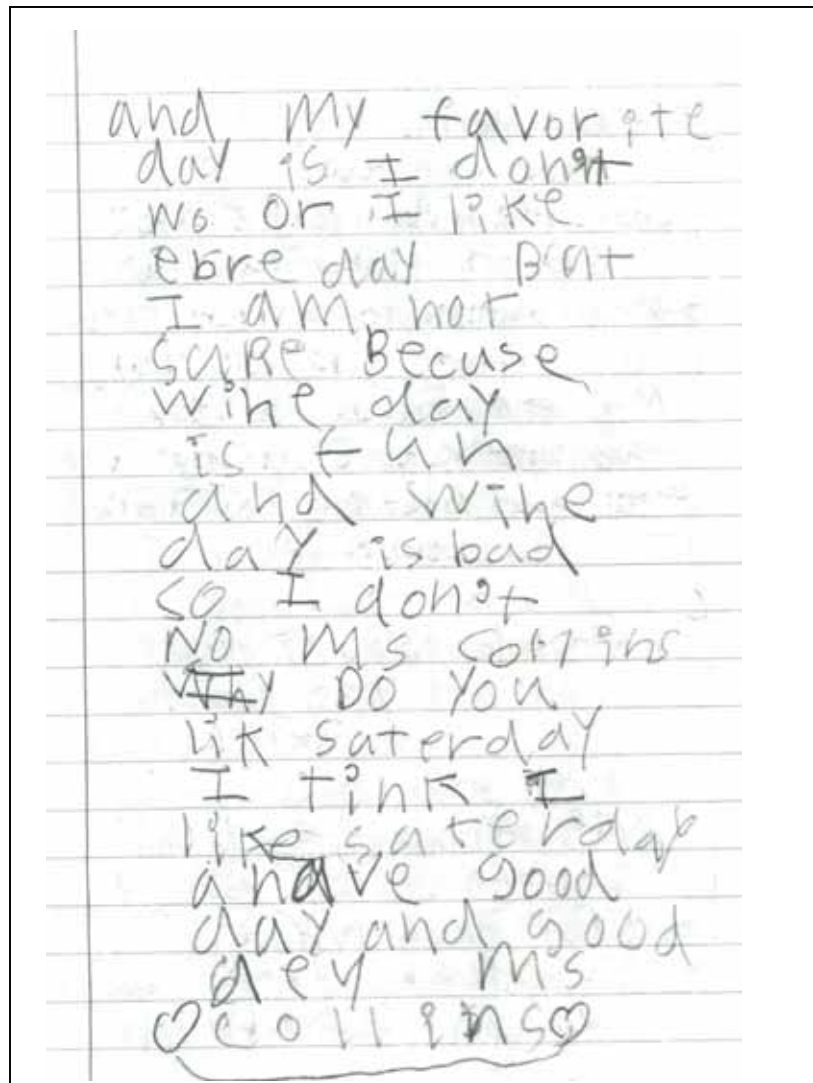 and My favorite
day is I don't
No or I like
ebre day But
I am not
SuRe Becuse
wine day
is fun
and wine
day is bad
so I don't
No Ms Collins
Why Do You
lik Saterday
I tink I
like saterday
a nave good
day and good
dey Ms
♡collins♡